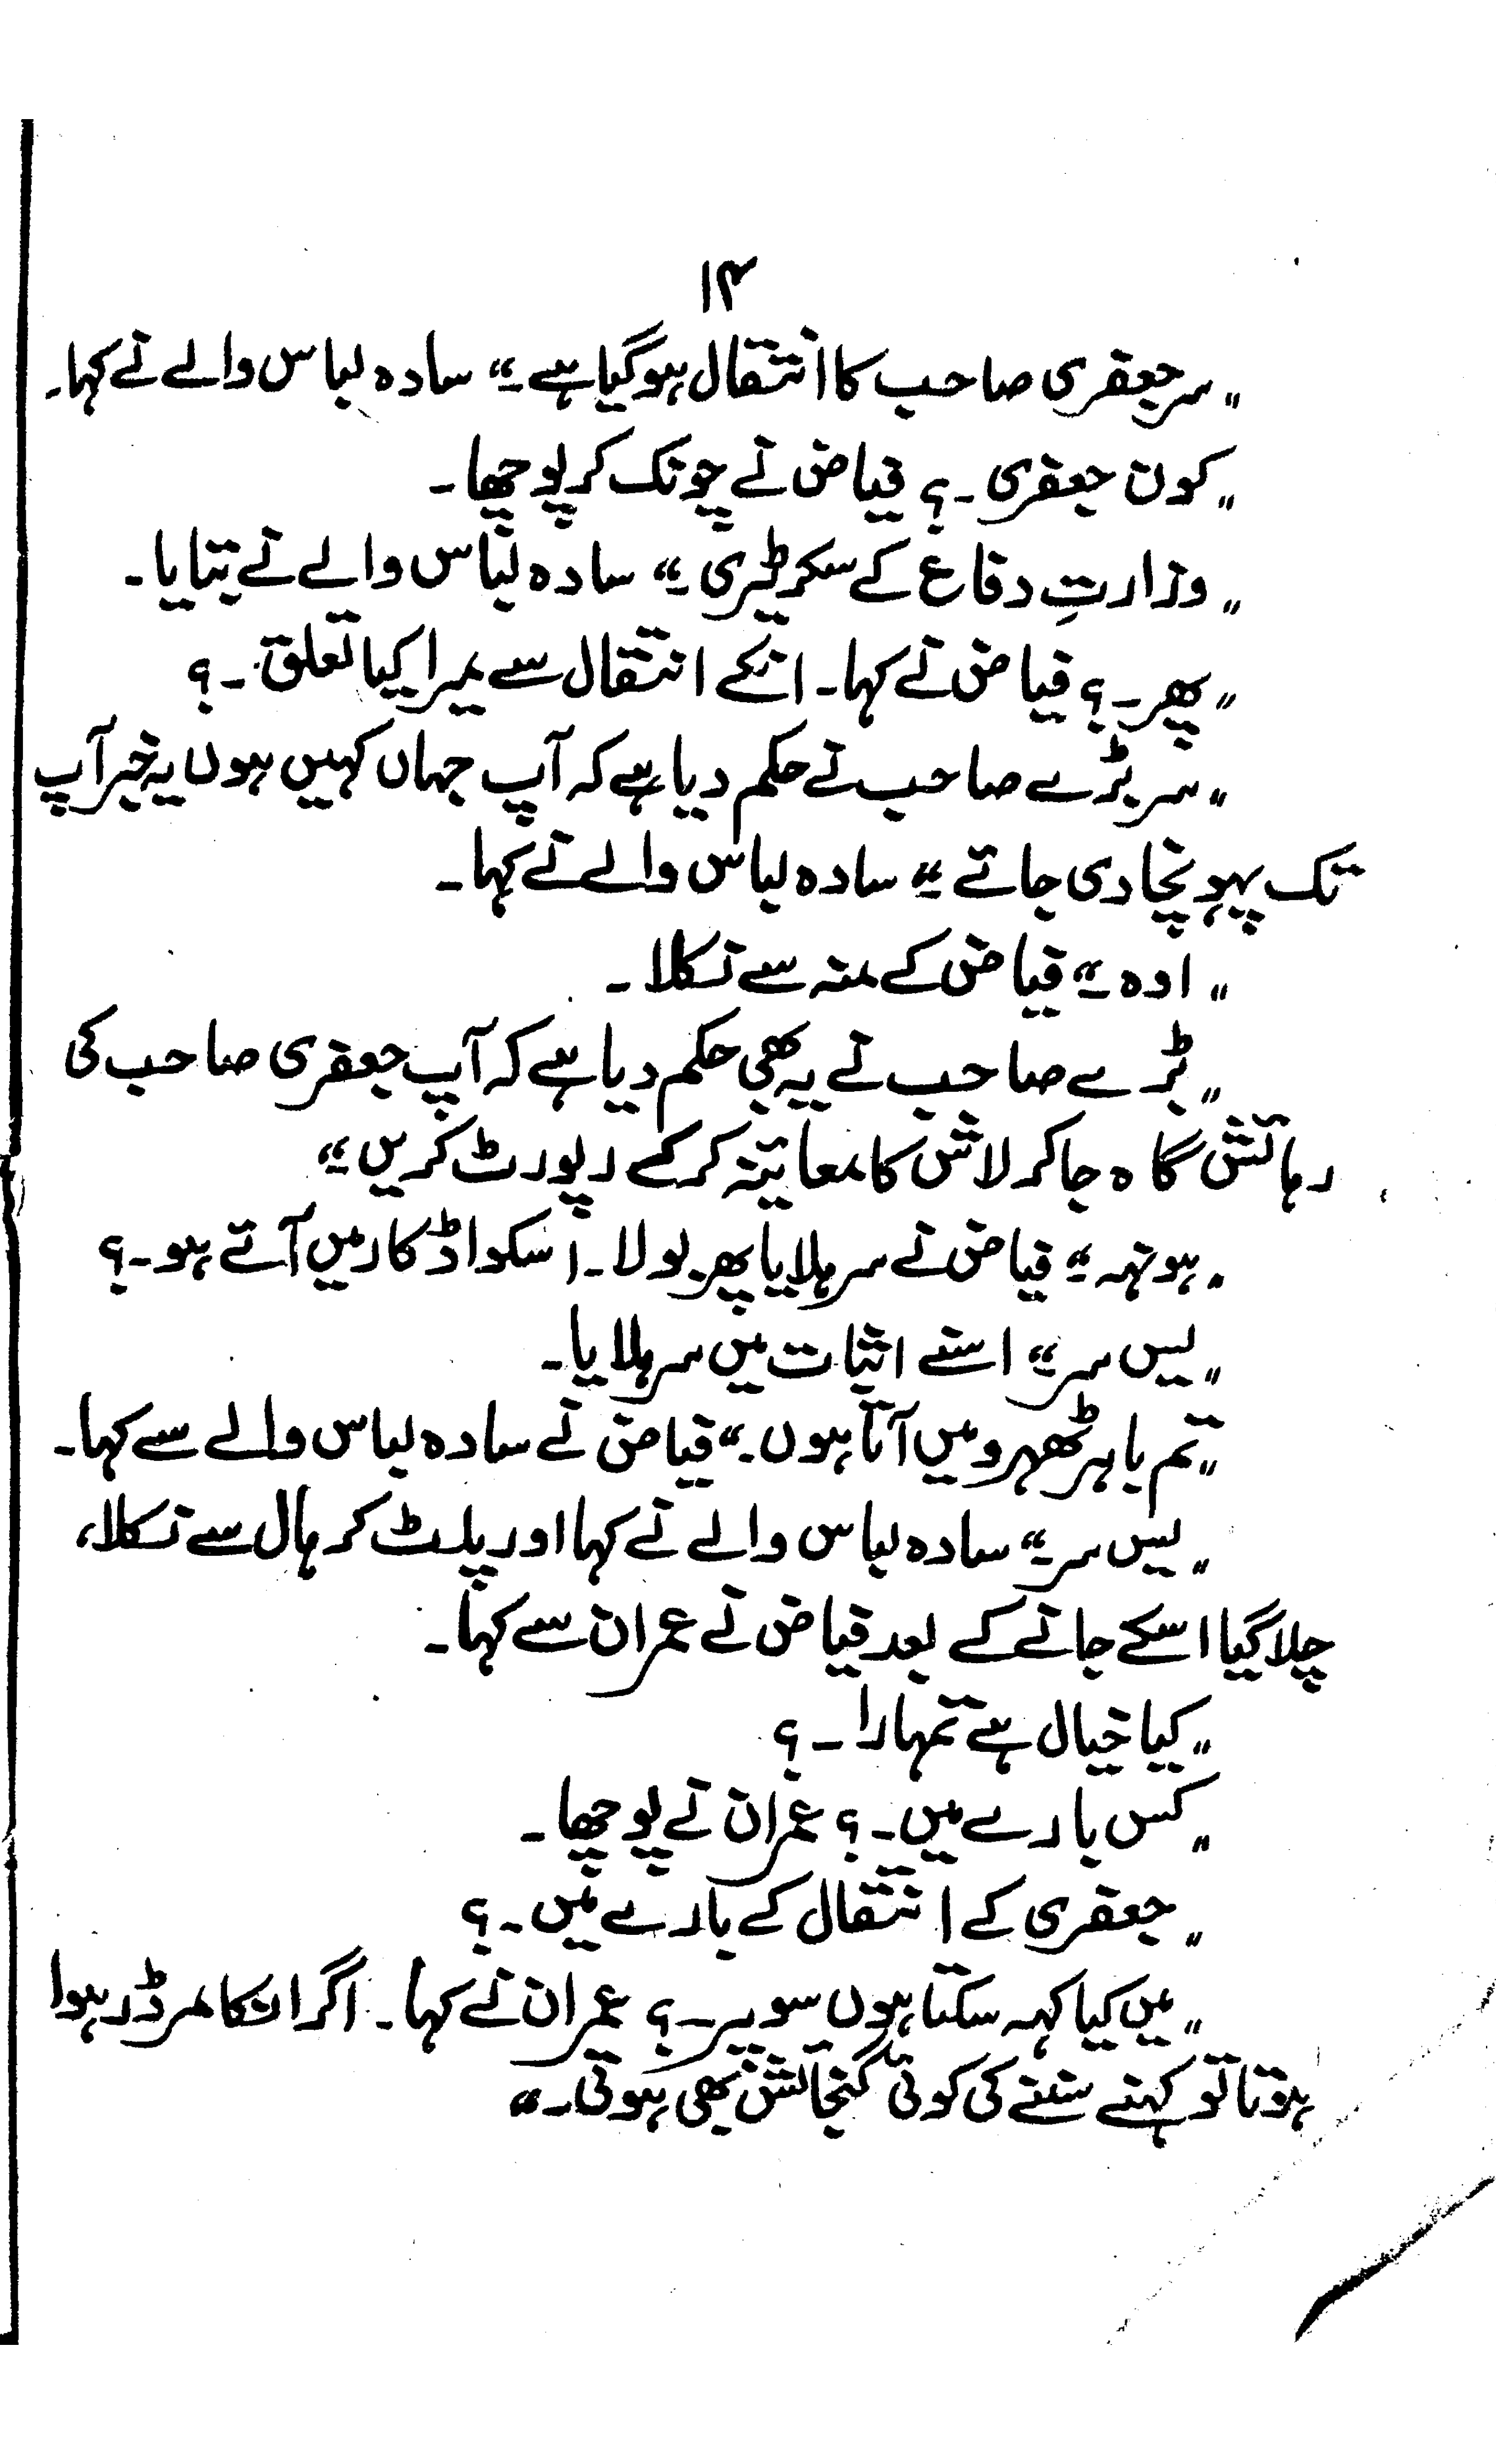 ۱۴
"سر جعفری صاحب کا انتقال ہوگیا ہے۔" سادہ لباس والے نے کہا۔
"کون جعفری۔؟ فیاض نے چونک کر پوچھا۔
"وزارتِ دفاع کے سکریٹری۔" سادہ لباس والے نے بتایا۔
"پھر۔؟ فیاض نے کہا۔ انکے انتقال سے میرا کیا تعلق۔؟
"سر بڑے صاحب نے حکم دیا ہے کہ آپ جہاں کہیں ہوں یہ خبر آپ
تک پہونچا دی جائے۔" سادہ لباس والے نے کہا۔
"اوہ۔" فیاض کے منہ سے نکلا۔
"بڑے صاحب نے یہ بھی حکم دیا ہے کہ آپ جعفری صاحب کی
رہائش گاہ جاکر لاش کا معائنہ کرکے رپورٹ کریں۔"
"ہونہہ۔" فیاض نے سر ہلایا پھر بولا۔ اسکواڈ کار میں آئے ہو۔؟
"یس سر۔" اسنے اثبات میں سر ہلایا۔
"تم باہر ٹھہرو میں آتا ہوں۔" فیاض نے سادہ لباس والے سے کہا۔
"یس سر۔" سادہ لباس والے نے کہا اور پلٹ کر ہال سے نکلا،
چلا گیا اسکے جانے کے بعد فیاض نے عمران سے کہا۔
"کیا خیال ہے تمہارا۔؟
"کس بارے میں۔؟ عمران نے پوچھا۔
"جعفری کے انتقال کے بارے میں۔؟
"میں کیا کہہ سکتا ہوں سوپر۔؟ عمران نے کہا۔ اگر انکا مرڈر ہوا
ہوتا تو کہنے سننے کی کوئی گنجائش بھی ہوتی۔"